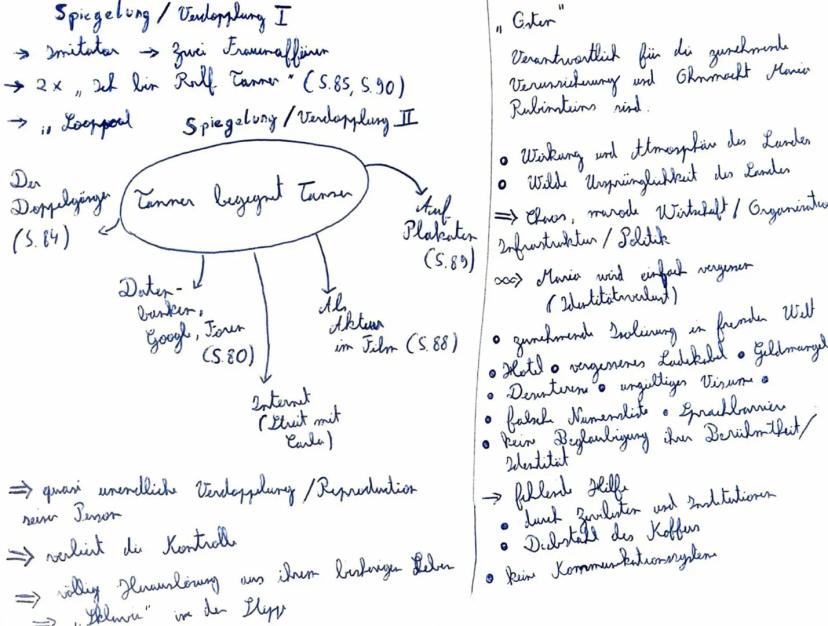 Spiegelung / Verdopplung I
→ Imitator → zwei Frauenaffären
→ 2x „Ich bin Ralf Tanner“ (S.85, S.90)
→ „Looppool
Spiegelung / Verdopplung II
Tanner begegnet Tanner
Der
Doppelgänger
(S. 84)
Auf
Plakaten
(S. 89)
Daten-
banken,
Google, Foren
(S. 80)
Als
Akteur
im Film (S. 88)
Internet
(Streit mit
Carla)
⇒ quasi unendliche Verdopplung / Reproduktion
seiner Person
⇒ verliert die Kontrolle
⇒ völlig Herauslösung aus ihrem bisherigen Leben
⇒ „Sklavin“ in der
„Osten“
Verantwortlich für die zunehmende
Verunsicherung und Ohnmacht Maria
Rubinsteins sind.
• Wirkung und Atmosphäre des Landes
• Wilde Ursprünglichkeit des Landes
⇒ Chaos, marode Wirtschaft / Organisation
Infrastruktur / Politik
Maria wird einfach vergessen
(Identitätsverlust)
• zunehmende Isolierung in fremden Welt
• Hotel • vergessenes Ladekabel • Geldmangel
• Desinteresse • ungültiges Visum •
• falsche Namensliste • Sprachbarriere
• keine Beglaubigung ihrer Berühmtheit /
Identität
→ fehlende Hilfe
• durch Zivilisten und Institutionen
• Diebstahl des Koffers
• keine Kommunikationssysteme